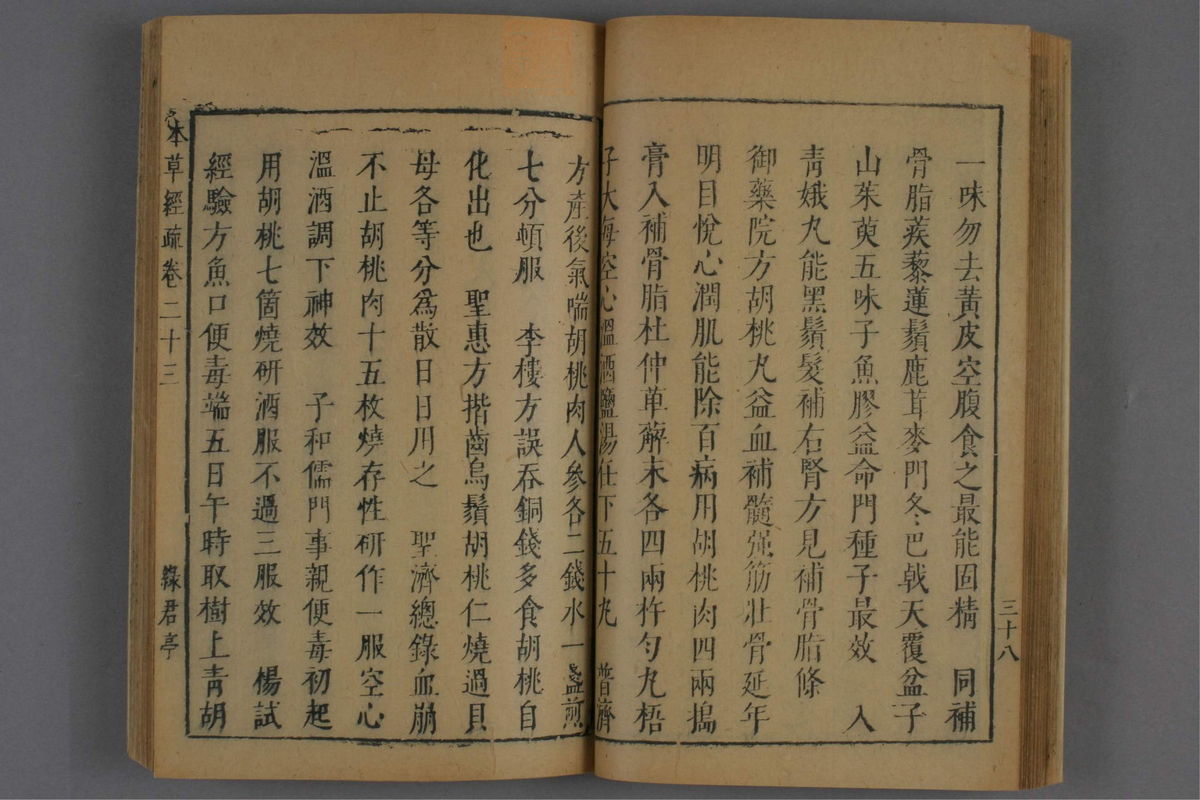 三十八
一味勿去黃皮空腹食之最能固精　同補
骨脂蒺藜蓮鬚鹿茸麥門冬巴戟天覆盆子
山茱萸五味子魚膠益命門種子最效　入
青娥丸能黑鬚髮補右腎方見補骨脂條
御藥院方胡桃丸益血補髓强筋壯骨延年
明目悅心潤肌能除百病用胡桃肉四兩搗
膏入補骨脂杜仲萆薢末各四兩杵勻丸梧
子大每空心溫酒鹽湯任下五十丸　普濟
方產後氣喘胡桃肉人參各二錢水一盞煎
七分頓服　李樓方誤吞銅錢多食胡桃自
化出也　聖惠方揩齒烏鬚胡桃仁燒過貝
母各等分爲散日日用之　聖濟總錄血崩
不止胡桃肉十五枚燒存性研作一服空心
溫酒調下神效　子和儒門事親便毒初起
用胡桃七箇燒研酒服不過三服效　楊試
經驗方魚口便毒端五日午時取樹上青胡
本草經疏卷二十三　綠君亭